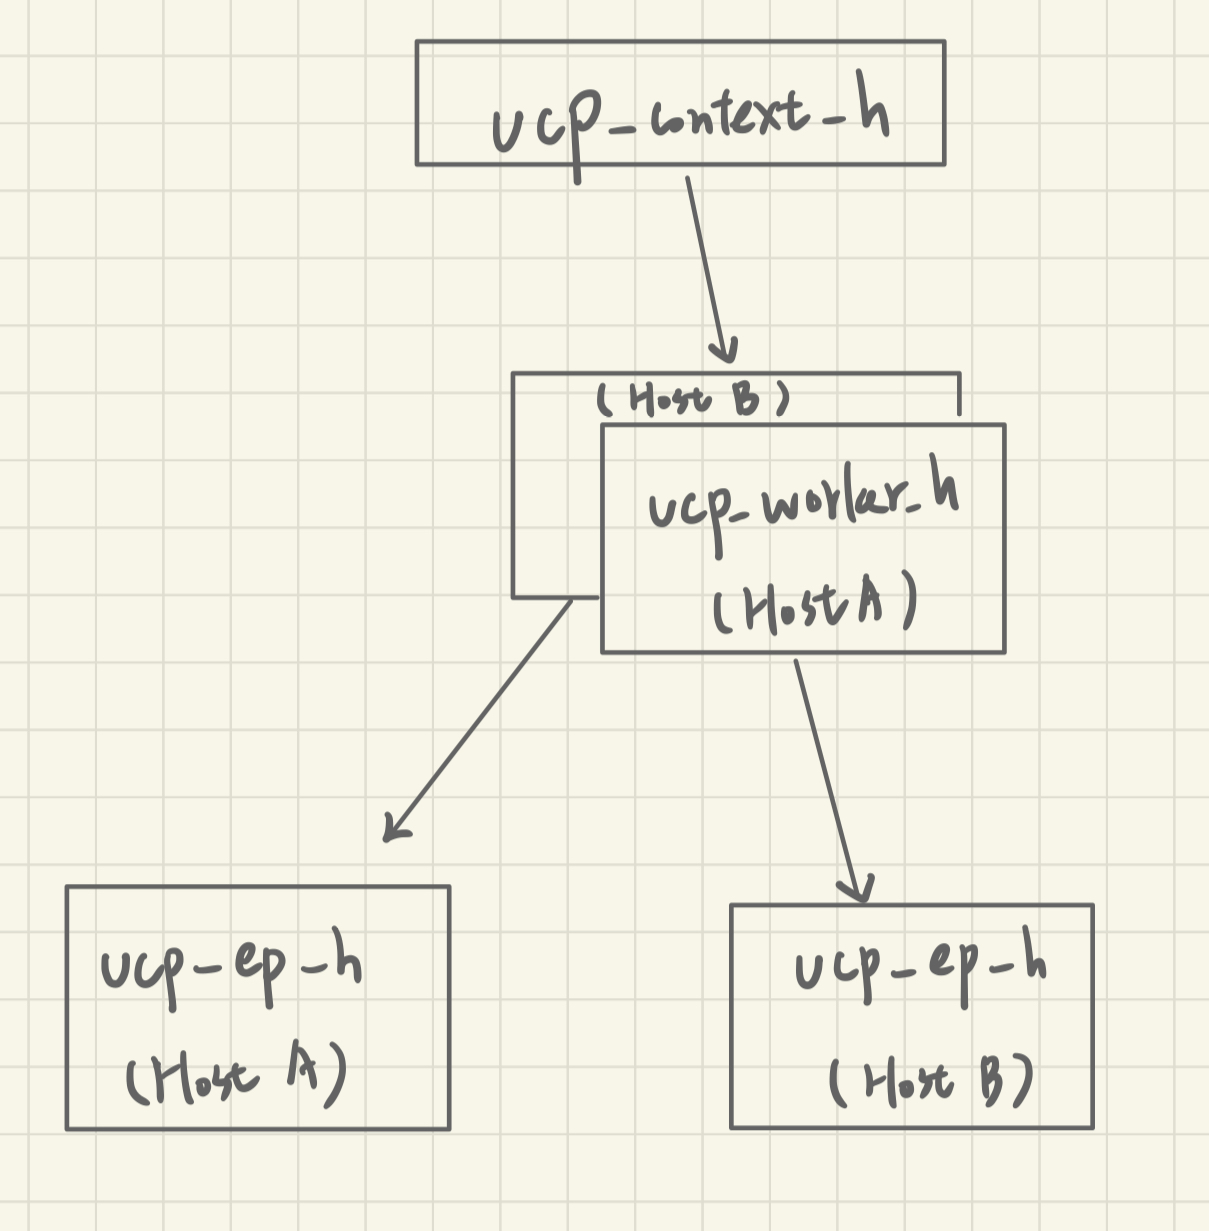 ucp_context_h
(Host B)
ucp_worker_h
(Host A)
ucp_ep_h
(Host A)
ucp_ep_h
(Host B)